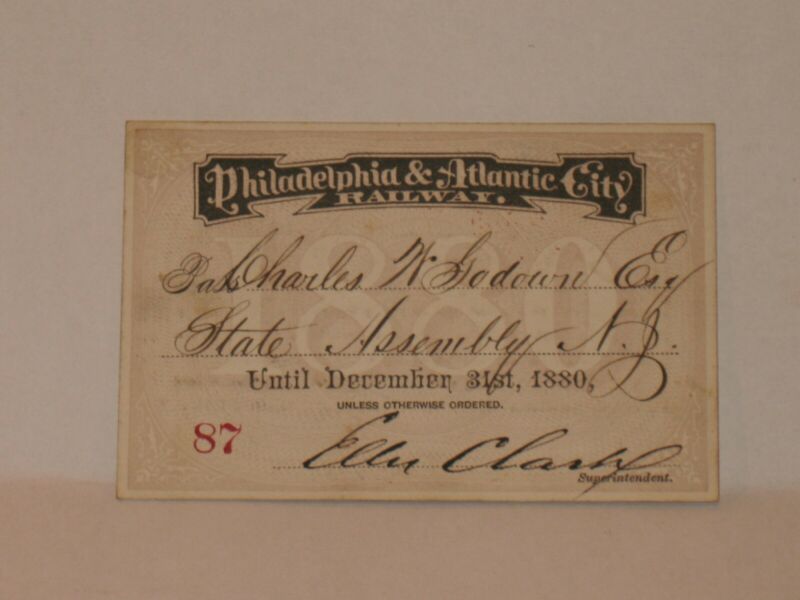 Philadelphia & Atlantic City
RAILWAY.
1880
Pass Charles W Godown Esq
State Assembly N.J.
Until December 31st, 1880,
UNLESS OTHERWISE ORDERED.
87
Clark
Superintendent.